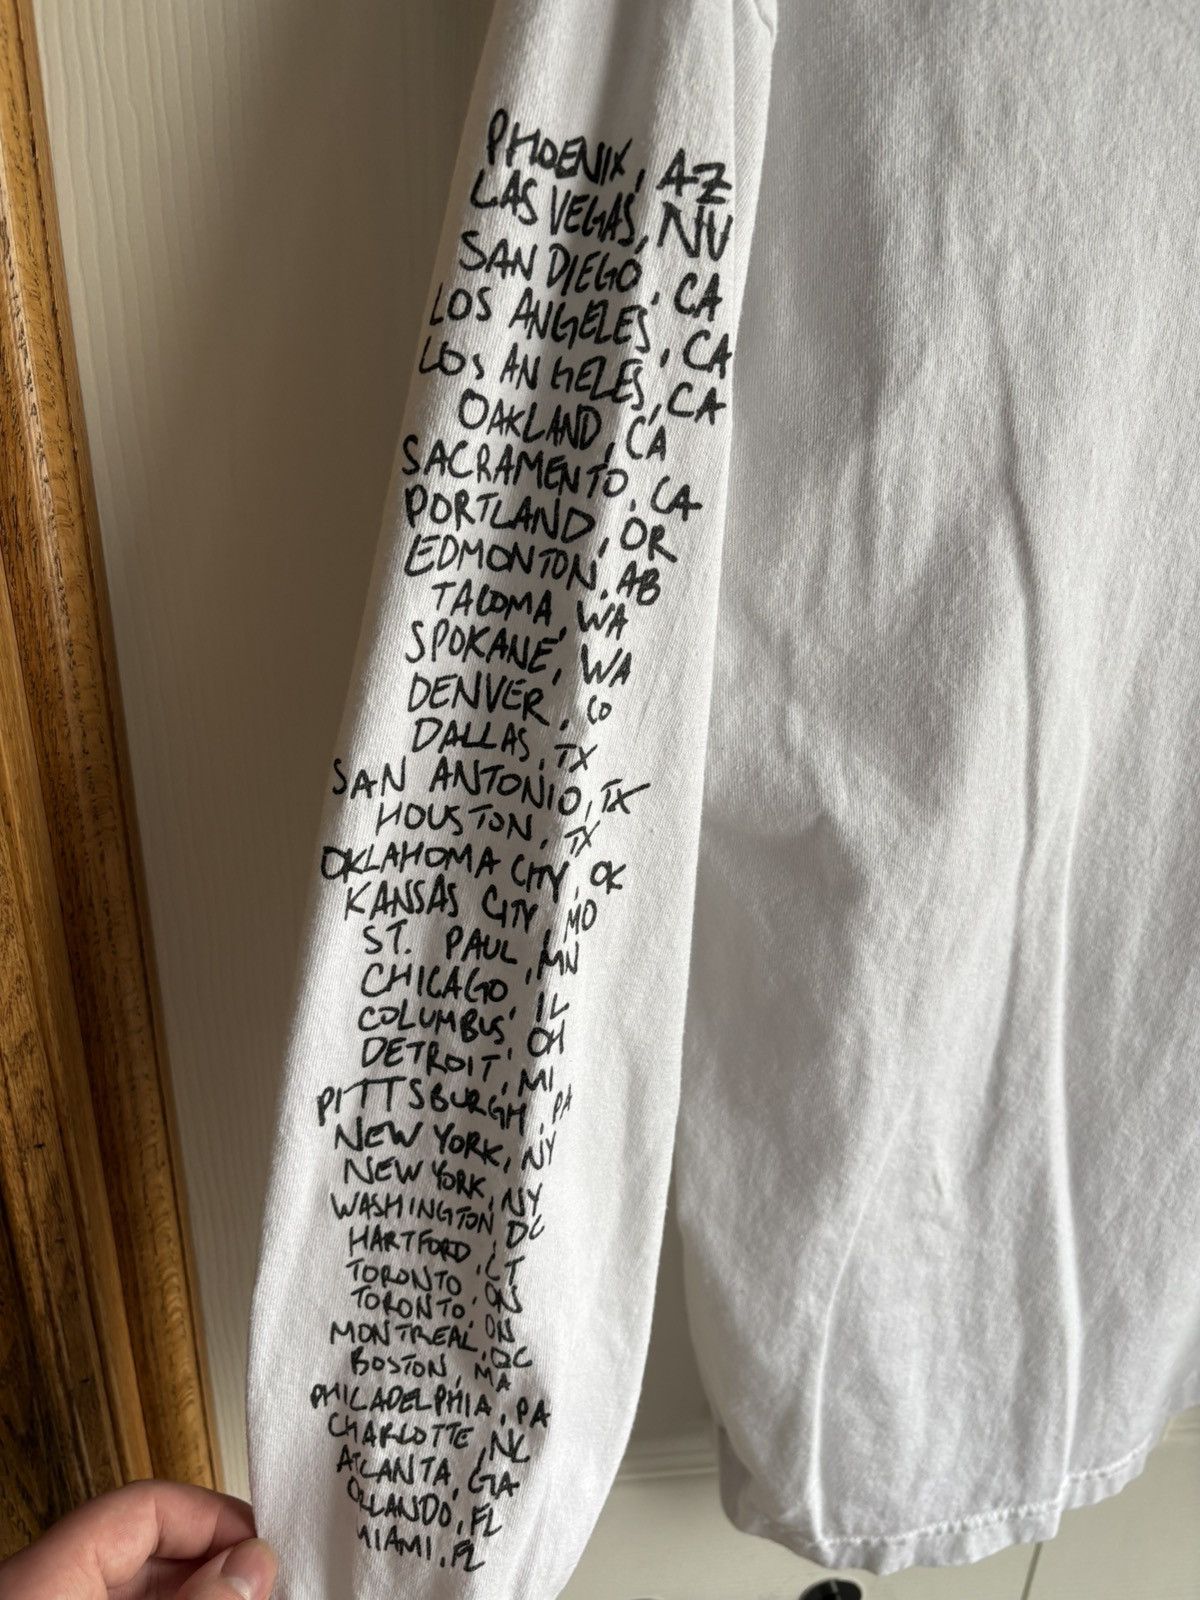 PHOENIX, AZ
LAS VEGAS, NV
SAN DIEGO, CA
LOS ANGELES, CA
LOS ANGELES, CA
OAKLAND, CA
SACRAMENTO, CA
PORTLAND, OR
EDMONTON, AB
TACOMA, WA
SPOKANE, WA
DENVER, CO
DALLAS, TX
SAN ANTONIO, TX
HOUSTON, TX
OKLAHOMA CITY, OK
KANSAS CITY, MO
ST. PAUL, MN
CHICAGO, IL
COLUMBUS, OH
DETROIT, MI
PITTSBURGH, PA
NEW YORK, NY
NEW YORK, NY
WASHINGTON, DC
HARTFORD, CT
TORONTO, ON
TORONTO, ON
MONTREAL, QC
BOSTON, MA
PHILADELPHIA, PA
CHARLOTTE, NC
ATLANTA, GA
ORLANDO, FL
MIAMI, FL